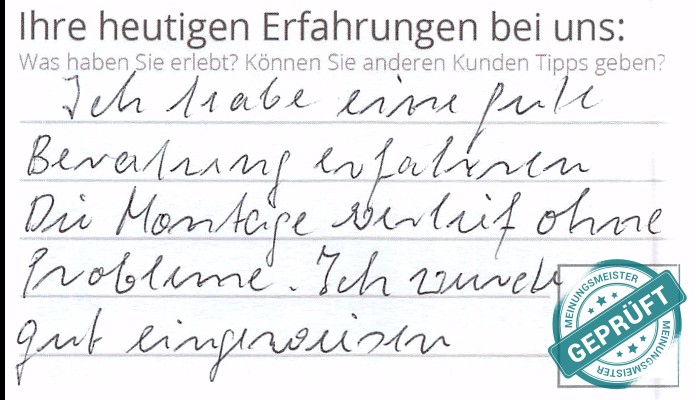 Ihre heutigen Erfahrungen bei uns:
Was haben Sie erlebt? Können Sie anderen Kunden Tipps geben?
Ich habe eine gute
Beratung erfahren
Die Montage verlief ohne
Probleme. Ich wurde
gut eingewiesen
MEINUNGSMEISTER
GEPRÜFT
MEINUNGSMEISTER